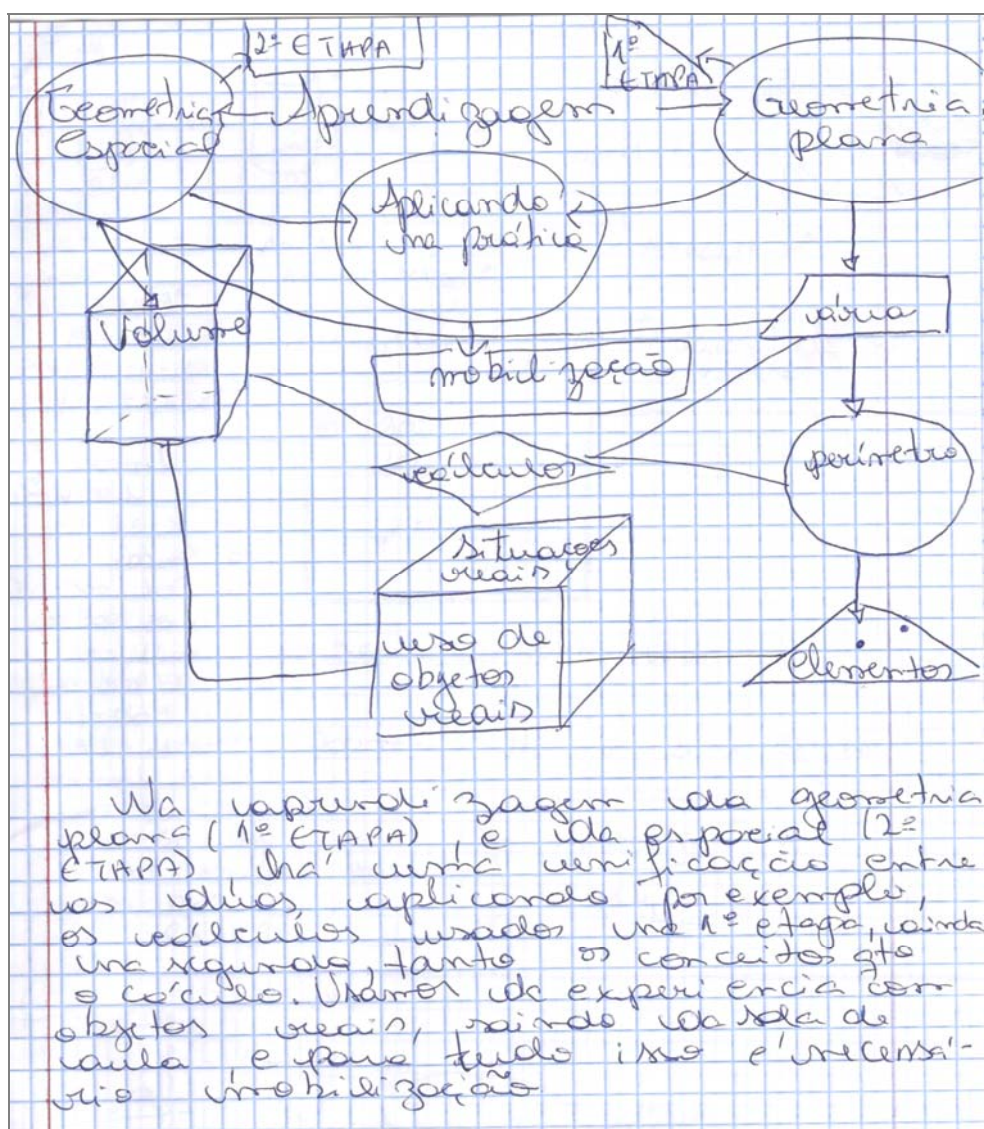 2ª ETAPA
1ª
ETAPA
Geometria
espacial
Aprendizagem
Geometria
plana
Aplicando
na prática
Volume
área
mobilização
cálculos
perímetro
situações
reais
uso de
objetos
reais
elementos
Na aprendizagem da geometria
plana (1ª ETAPA), e da espacial (2ª
ETAPA), há uma unificação entre
as duas, aplicando por exemplo,
os cálculos usados na 1ª etapa, ainda
na segunda, tanto os conceitos qto
o cálculo. Usamos da experiencia com
objetos reais, saindo da sala de
aula, e para tudo isso é necessá-
rio mobilização